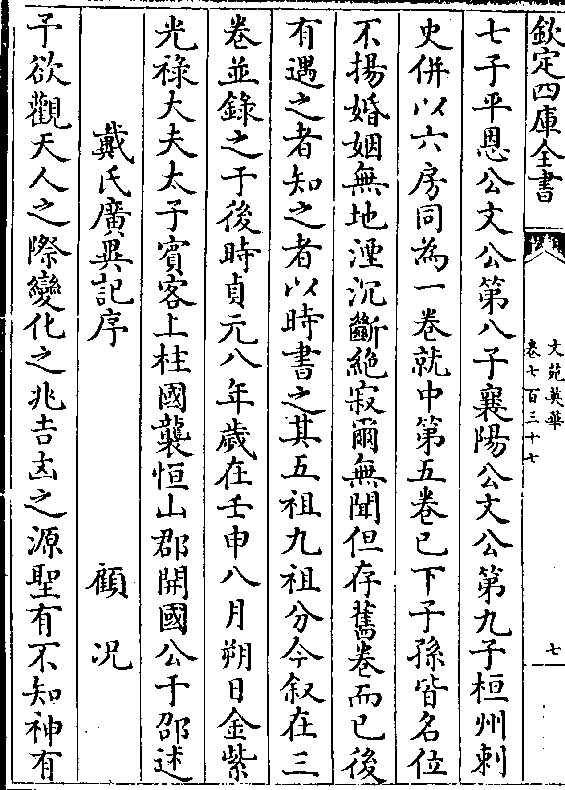 欽定四庫全書
文苑英華
卷七百三十七
七
七子平恩公文公第八子襄陽公文公第九子桓州刺
史併以六房同為一卷就中第五卷已下子孫皆名位
不揚婚姻無地湮沉斷絶寂爾無聞但存舊卷而已後
有遇之者知之者以時書之其五祖九祖分今叙在三
卷並錄之于後時貞元八年歲在壬申八月朔日金紫
光祿大夫太子賓客上柱國襲恒山郡開國公于邵述
戴氏廣異記序 顧況
子欲觀天人之際變化之兆吉凶之源聖有不知神有